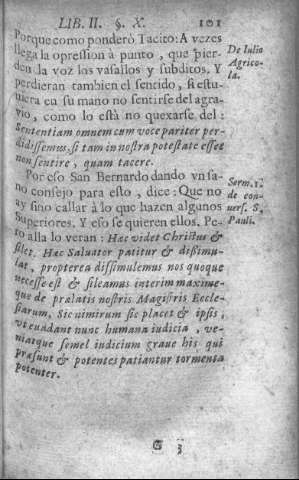 LIB. II. §. X. 101
Porque como ponderò Tacito: A vezes
llega la opression à punto, que pier-
den la voz los vasallos y subditos. Y
perdieran tambien el sentido, si estu-
uiera en su mano no sentirse del agra-
vio, como lo està no quexarse del:
Sententiam omnem cum voce pariter per-
didissemus, si tam in nostra potestate essee
non sentire, quam tacere.
De Iulio
Agrico-
la.
Por eso San Bernardo dando vn sa-
no consejo para esto, dice: Que no
ay sino callar à lo que hazen algunos
Superiores. Y eso se quieren ellos. Pe-
ro alla lo veran: Hæc videt Christus &
silet. Hæc Salvator patitur & dissimu-
lat, propterea dissimulemus nos quoque
necesse est & sileamus interim maxime-
que de prælatis nostris Magistris Eccle-
siarum, Sic nimirum sic placet & ipsis,
vt euadant nunc humana iudicia, ve-
niatque semel iudicium graue his qui
præsunt & potentes patiantur tormenta
potenter.
Serm. 1.
de con-
uers. S.
Pauli.
G 3